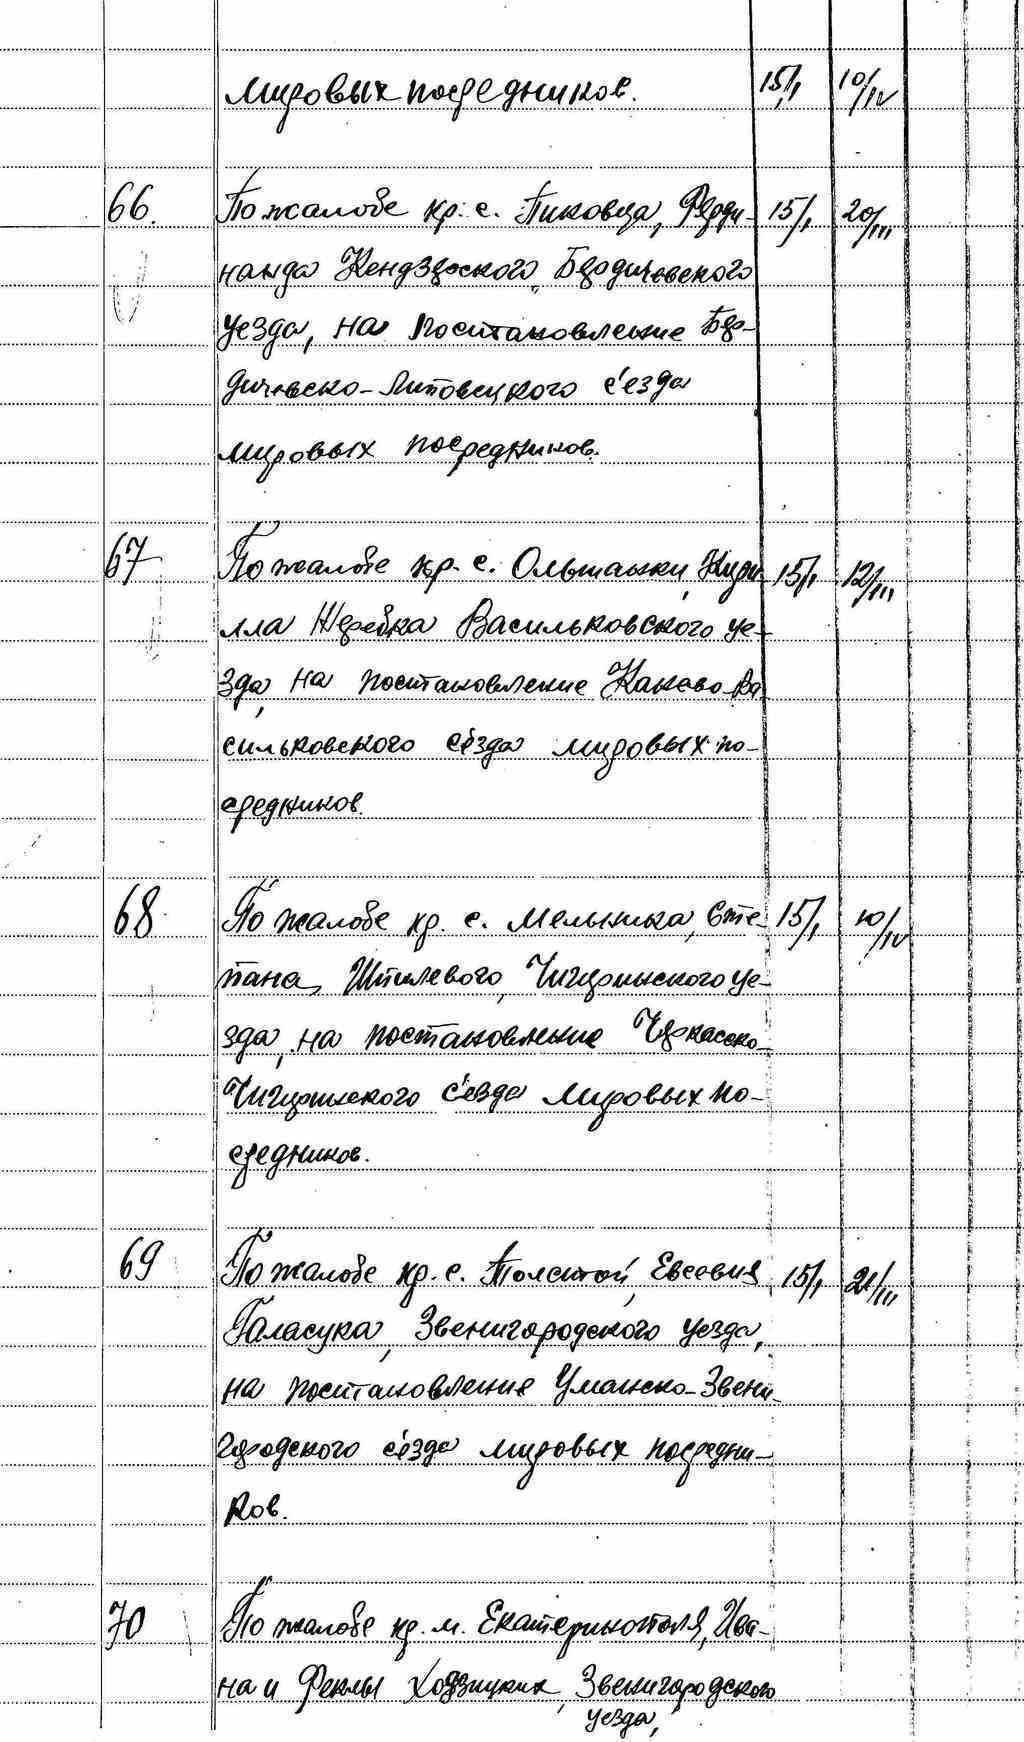 мировых посредников. 15/I 10/IV
66. По жалобе кр. с. Пиковца, Ферди- 15/I 20/III
нанда Кендзерского, Бердичевского
уезда, на постановление Бер-
дичевско-Липовецкого с'езда
мировых посредников.
67 По жалобе кр. с. Ольшанки, Кири- 15/I 12/III
лла Жеребка Васильковского уе-
зда, на постановление Канево-Ва
сильковского с'езда мировых по-
средников.
68 По жалобе кр. с. Мельника, Сте- 15/I 10/IV
пана Шпилевого, Чигиринского уе-
зда, на постановление Черкасско-
Чигиринского с'езда мировых по-
средников.
69 По жалобе кр. с. Толстой, Евсевия 15/I 21/III
Галасука, Звенигородского уезда,
на постановление Уманско-Звени-
городского с'езда мировых посредни-
ков.
70 По жалобе кр. м. Екатеринополя, Ива-
на и Феклы Ходзицких, Звенигородского
уезда,